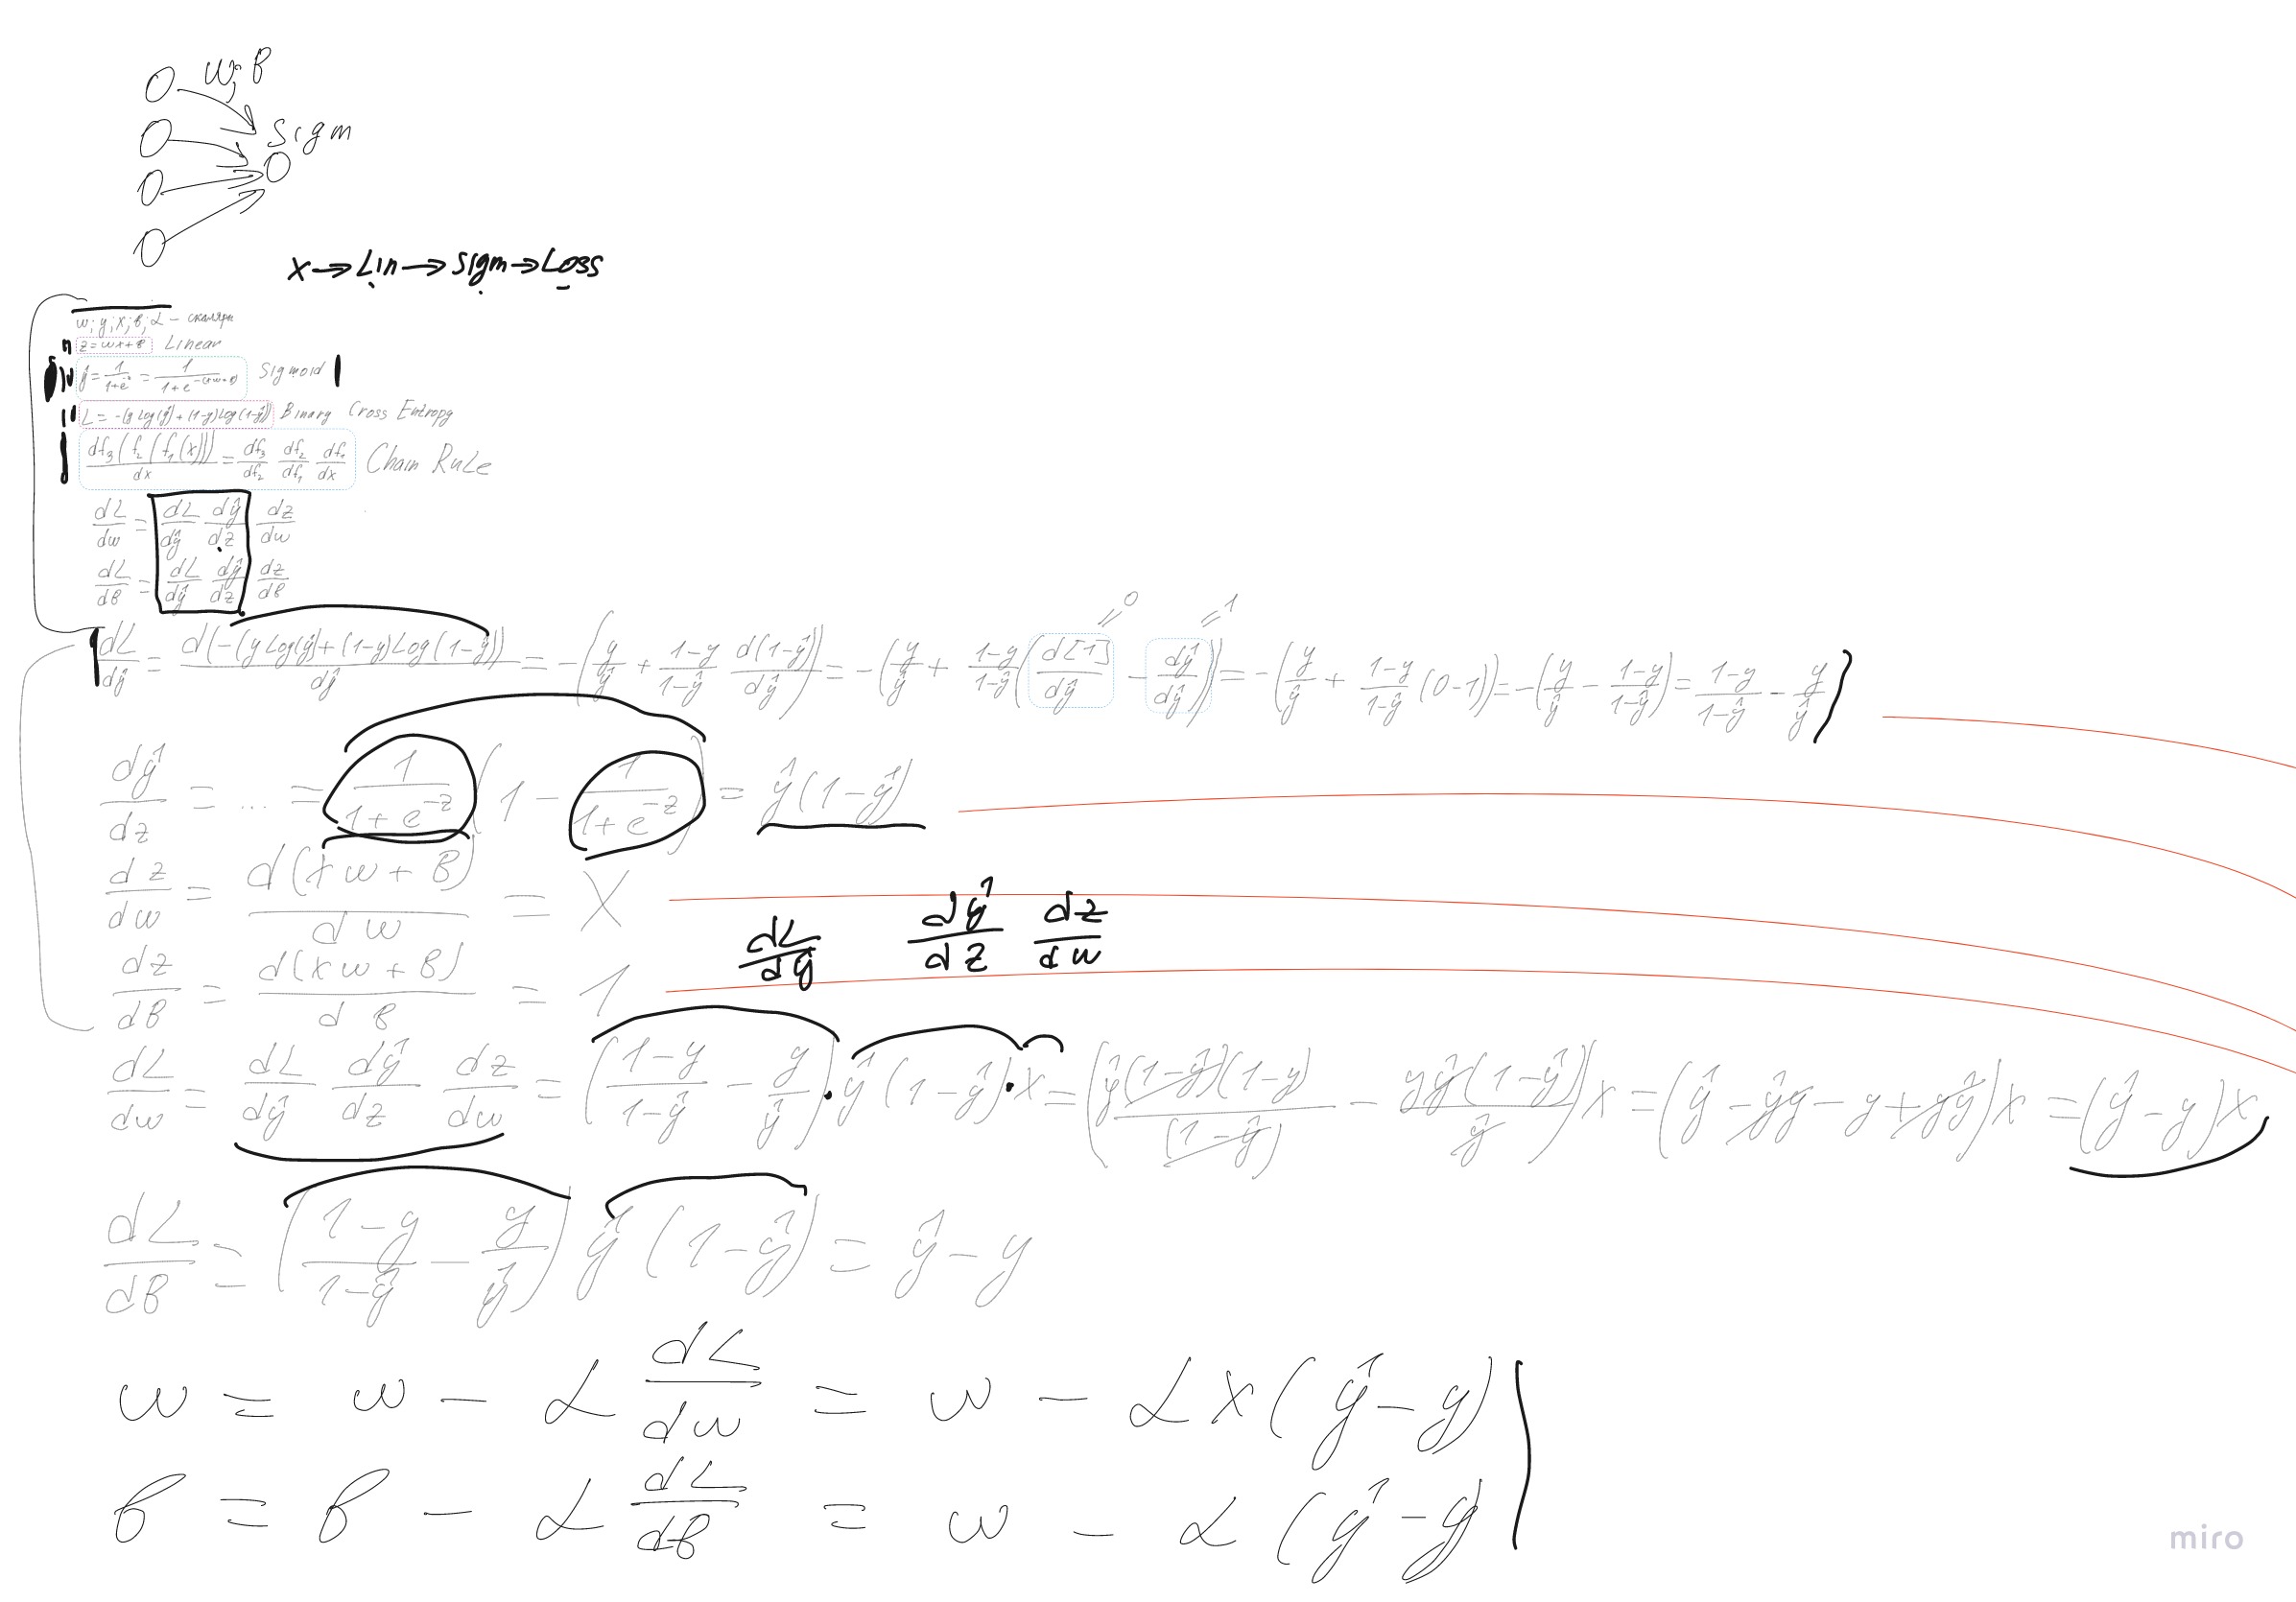 w; B
Sigm
x → Lin → Sigm → Loss
w; y; x; b; α - скаляри
z = wx + b Linear
ŷ = 1/(1+e^-z) = 1/(1+e^-(xw+b)) Sigmoid
L = -(y Log(ŷ) + (1-y) Log(1-ŷ)) Binary Cross Entropy
df₃(f₂(f₁(x)))/dx = df₃/df₂ df₂/df₁ df₁/dx Chain Rule
dL/dw = dL/dŷ dŷ/dz dz/dw
dL/db = dL/dŷ dŷ/dz dz/db
=0 =1
dL/dŷ = d(-(y Log(ŷ) + (1-y) Log(1-ŷ)))/dŷ = -(y/ŷ + (1-y)/(1-ŷ) d(1-ŷ)/dŷ) = -(y/ŷ + (1-y)/(1-ŷ) (d[1]/dŷ - dŷ/dŷ)) = -(y/ŷ + (1-y)/(1-ŷ) (0-1)) = -(y/ŷ - (1-y)/(1-ŷ)) = (1-y)/(1-ŷ) - y/ŷ
dŷ/dz = ... = 1/(1+e^-z) (1 - 1/(1+e^-z)) = ŷ(1-ŷ)
dz/dw = d(xw+b)/dw = x
dL/dŷ dŷ/dz dz/dw
dz/db = d(xw+b)/db = 1
dL/dw = dL/dŷ dŷ/dz dz/dw = ((1-y)/(1-ŷ) - y/ŷ) · ŷ(1-ŷ) · x = (ŷ(1-ŷ)(1-y)/(1-ŷ) - yŷ(1-ŷ)/ŷ) x = (ŷ - ŷy - y + yŷ) x = (ŷ - y) x
dL/db = ((1-y)/(1-ŷ) - y/ŷ) ŷ(1-ŷ) = ŷ - y
w = w - α dL/dw = w - α x (ŷ - y)
b = b - α dL/db = w - α (ŷ - y)
miro